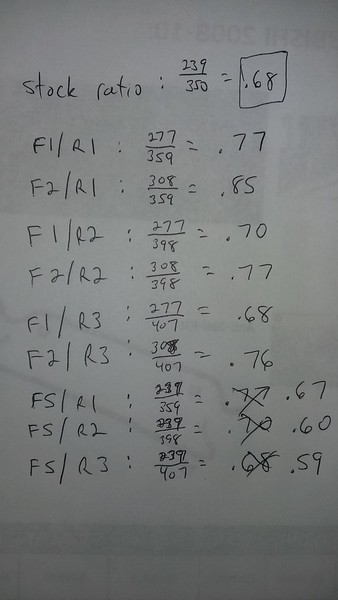 stock ratio : 239/350 = .68
F1/R1 : 277/359 = .77
F2/R1 : 308/359 = .85
F1/R2 : 277/398 = .70
F2/R2 : 308/398 = .77
F1/R3 : 277/407 = .68
F2/R3 : 308/407 = .76
FS/R1 : 239/359 = .77 .67
FS/R2 : 239/398 = .70 .60
FS/R3 : 239/407 = .68 .59